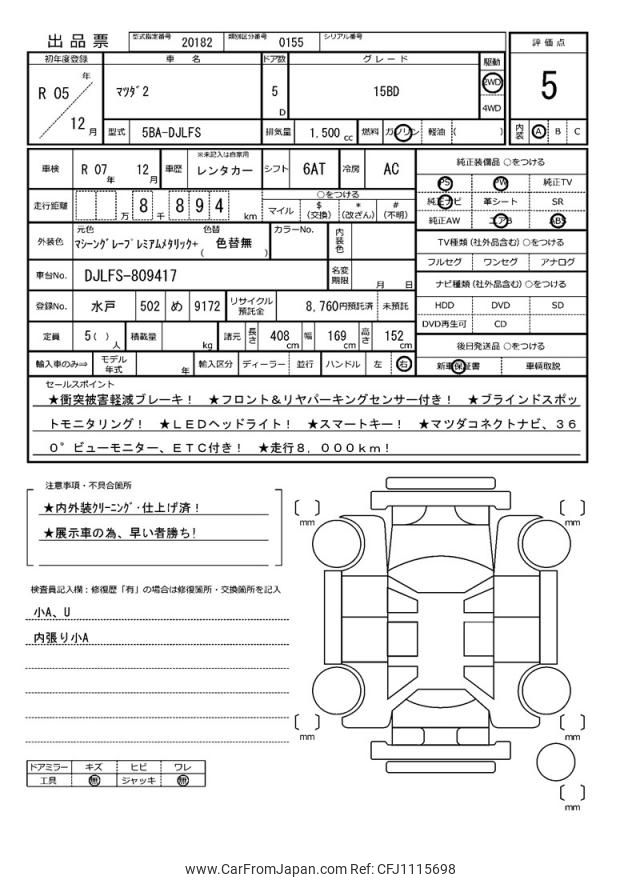 出品票 型式指定番号 20182 類別区分番号 0155 シリアル番号
評価点
5
初年度登録 車名 ドア数 グレード 駆動
R 05 年 12 月 マツダ2 5 D 15BD 2WD 4WD
型式 5BA-DJLFS 排気量 1.500 cc 燃料 ガソリン 軽油 ( )
内装 A B C
車検 R 07 年 12 月 車歴 ※未記入は自家用 レンタカー シフト 6AT 冷房 AC
走行距離 万 8 千 8 9 4 km
○をつける
マイル $ (交換) * (改ざん) # (不明)
外装色 元色 マシーングレープレミアムメタリック+ 色替 ( 色替無 ) カラーNo. 内装色
車台No. DJLFS-809417 名変期限 月 日
登録No. 水戸 502 め 9172 リサイクル預託金 8,760円預託済 未預託
定員 5( ) 人 積載量 kg 諸元 長さ 408 cm 幅 169 cm 高さ 152 cm
輸入車のみ⇒ モデル年式 年 輸入区分 ディーラー 並行 ハンドル 左 右
純正装備品 ○をつける
PS PW 純正TV
純正ナビ 革シート SR
純正AW エアB ABS
TV種類 (社外品含む) ○をつける
フルセグ ワンセグ アナログ
ナビ種類 (社外品含む) ○をつける
HDD DVD SD
DVD再生可 CD
後日発送品 ○をつける
新車保証書 車輌取説
セールスポイント
★衝突被害軽減ブレーキ! ★フロント&リヤパーキングセンサー付き! ★ブラインドスポッ
トモニタリング! ★LEDヘッドライト! ★スマートキー! ★マツダコネクトナビ、36
0°ビューモニター、ETC付き! ★走行8,000km!
注意事項・不具合箇所
★内外装クリーニング・仕上げ済!
★展示車の為、早い者勝ち!
検査員記入欄:修復歴「有」の場合は修復箇所・交換箇所を記入
小A、U
内張り小A
mm
mm
mm
mm
mm
ドアミラー キズ ヒビ ワレ
工具 無 ジャッキ 無
www.CarFromJapan.com Ref: CFJ1115698